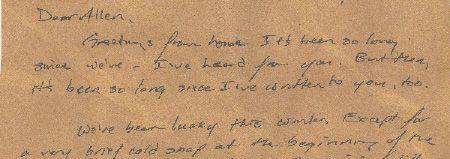 Dear Allen,
Greetings from home. It's been so long
since we've – I've heard from you. But then,
it's been so long since I've written to you, too.
We've been lucky this winter. Except for
a very brief cold snap at the beginning of the